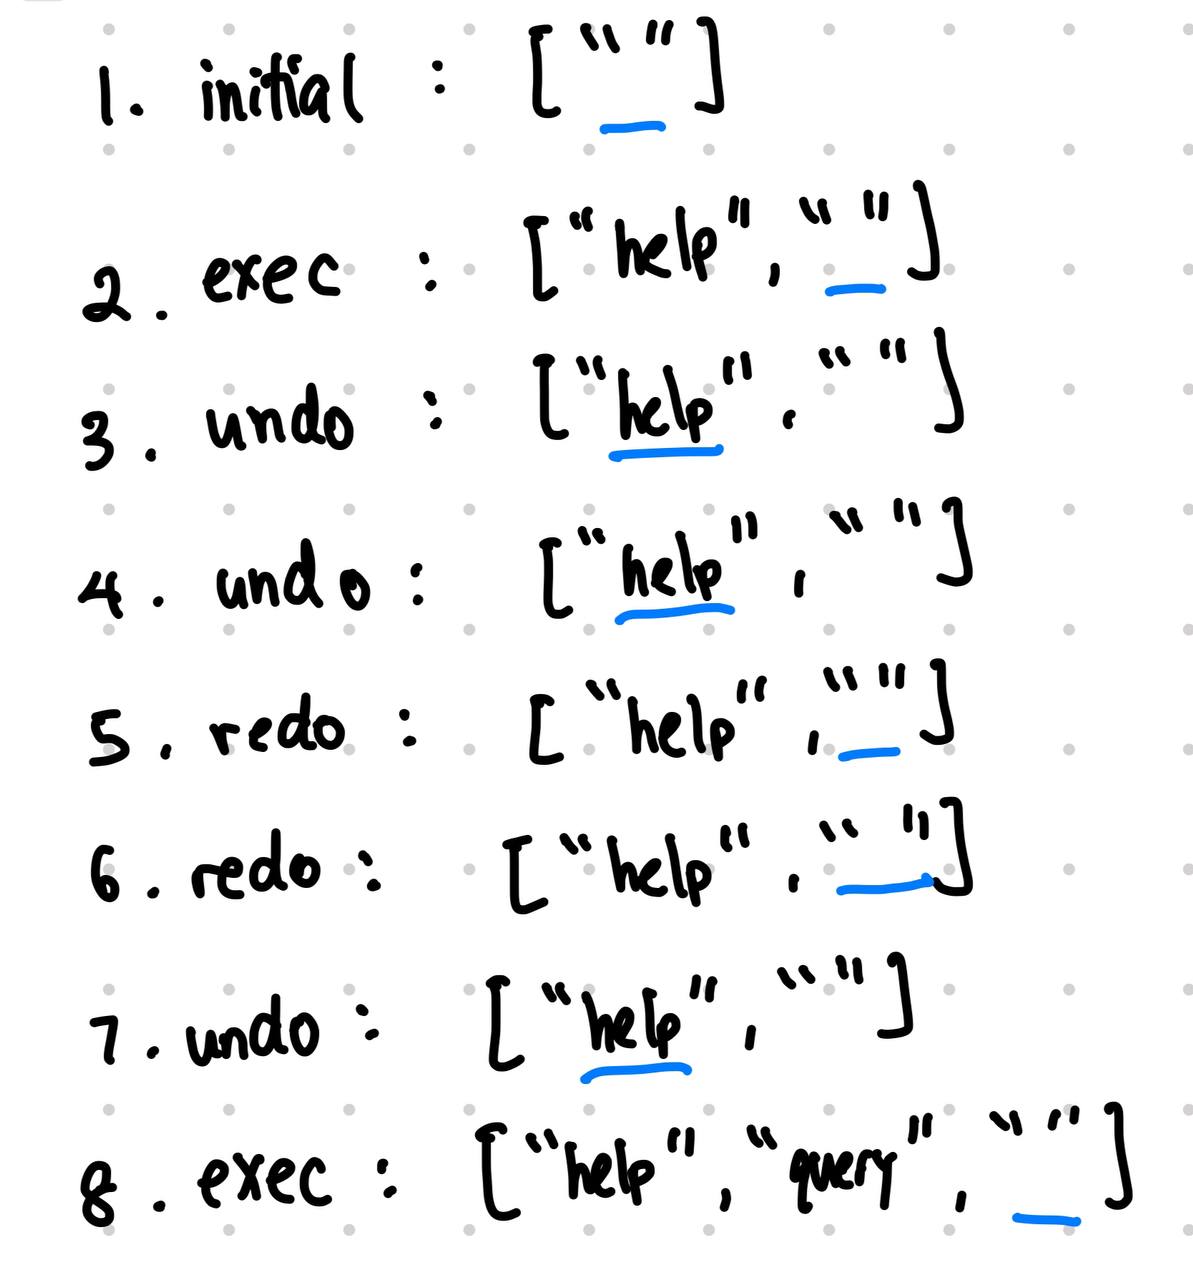 1. initial : [“ ”]
2. exec : [“help”, “ ”]
3. undo : [“help”, “ ”]
4. undo : [“help”, “ ”]
5. redo : [“help”, “ ”]
6. redo : [“help”, “ ”]
7. undo : [“help”, “ ”]
8. exec : [“help”, “query”, “ ”]